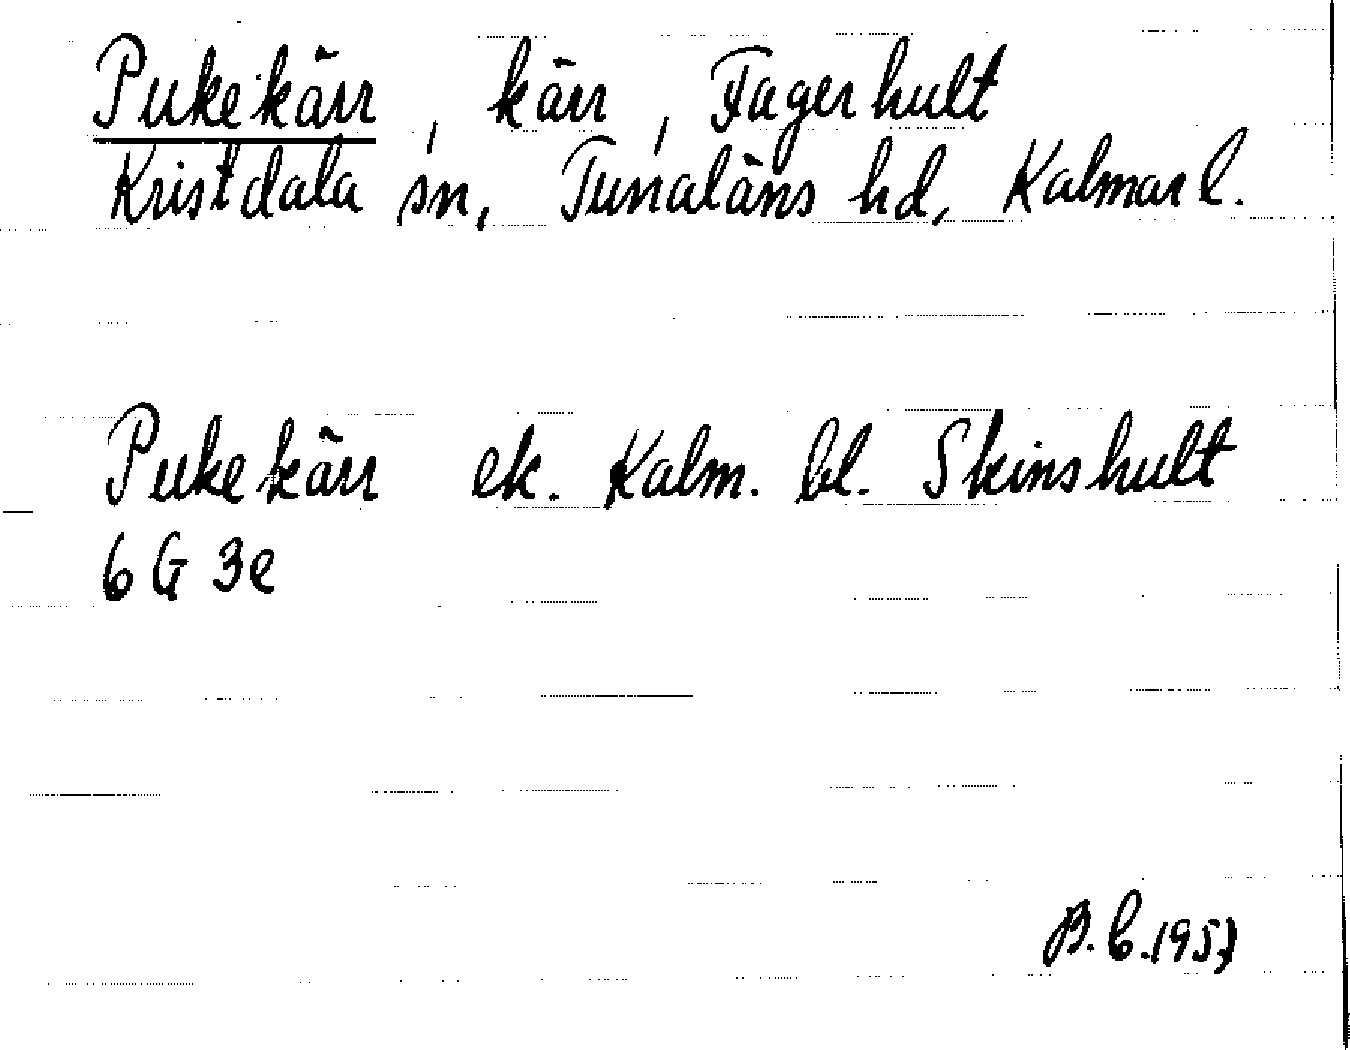 Pukekärr, kärr, Fagerhult
Kristdala sn, Tunaläns hd, Kalmar l.
Pukekärr ek. Kalm. bl. Skinshult
6 G 3e
B. C. 1957